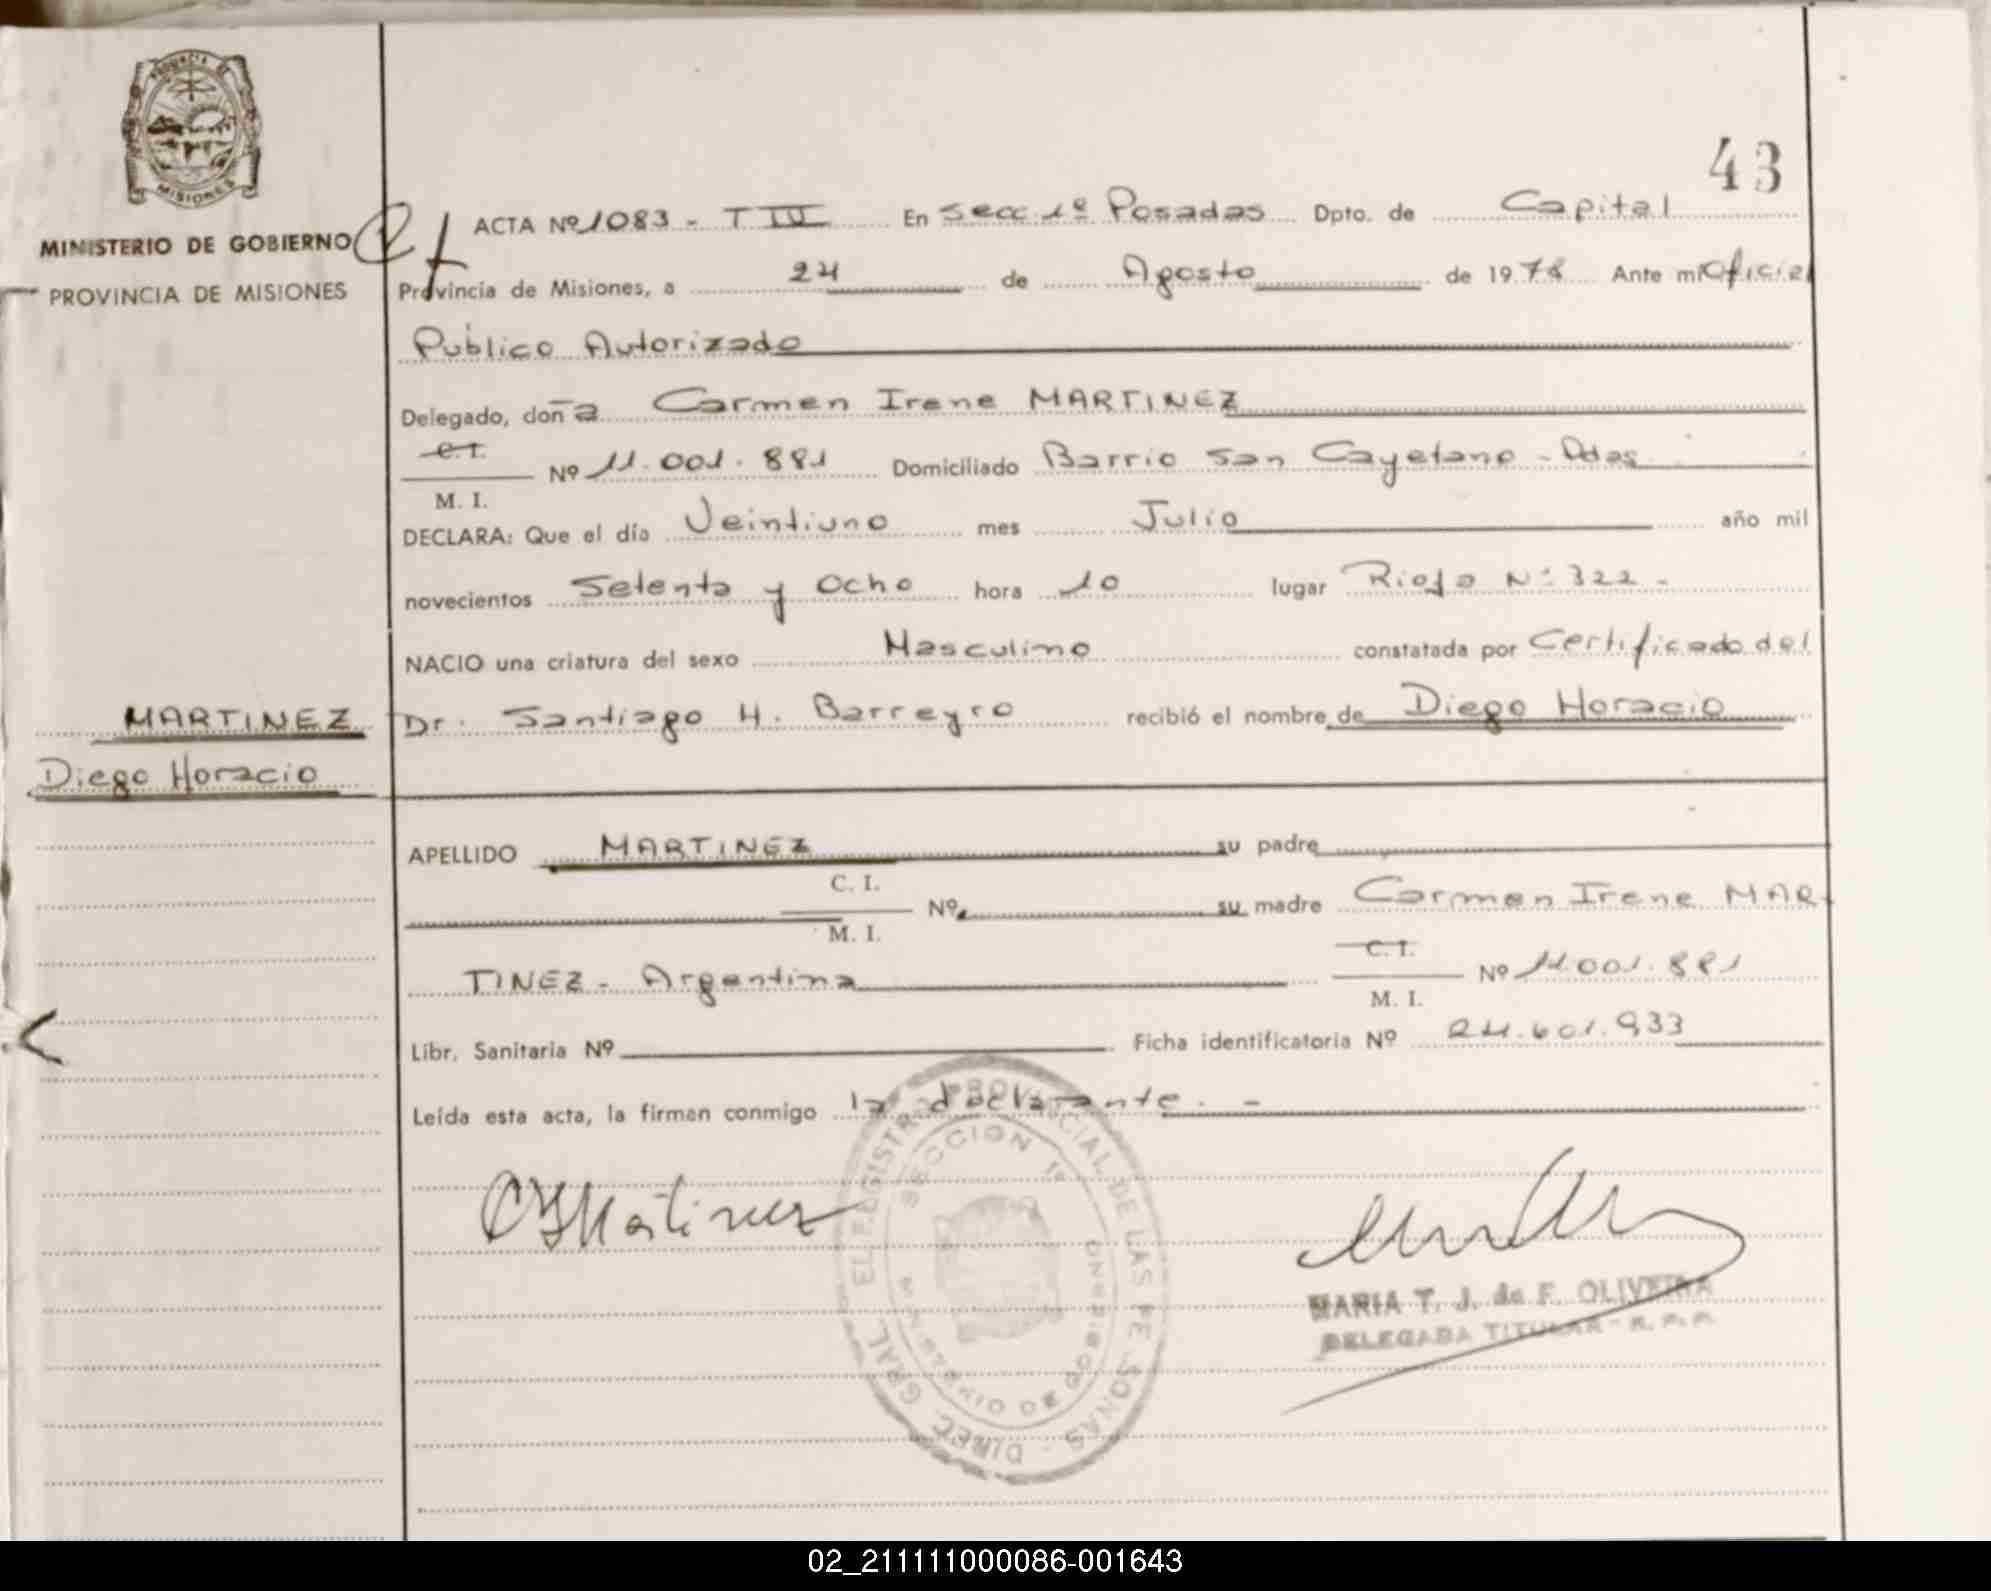 PROVINCIA DE
MISIONES
MINISTERIO DE GOBIERNO
PROVINCIA DE MISIONES
43
ACTA Nº 1083 - T IV En Secc 1º Posadas Dpto. de Capital
Provincia de Misiones, a 24 de Agosto de 1978 Ante mi Oficial
Público Autorizado
Delegado, don a Carmen Irene MARTINEZ
C.I.
M. I. Nº 11.001.881 Domiciliado Barrio San Cayetano - Pdas
DECLARA: Que el día Veintiuno mes Julio año mil
novecientos Setenta y Ocho hora 10 lugar Rioja Nº 322 -
NACIO una criatura del sexo Masculino constatada por Certificado del
Dr. Santiago H. Barreyro recibió el nombre de Diego Horacio
MARTINEZ
Diego Horacio
APELLIDO MARTINEZ su padre
C. I.
M. I. Nº su madre Carmen Irene MAR-
TINEZ - Argentina C.I.
M. I. Nº 11.001.881
Libr. Sanitaria Nº Ficha identificatoria Nº 24.601.933
Leída esta acta, la firman conmigo la declarante. -
DIREC. GRAL. EL REGISTRO PROVINCIAL DE LAS PERSONAS -
SECCION 1º
MINISTERIO DE GOBIERNO
Martinez
MARIA T. J. de F. OLIVEIRA
DELEGADA TITULAR - R. P. P.
02_211111000086-001643